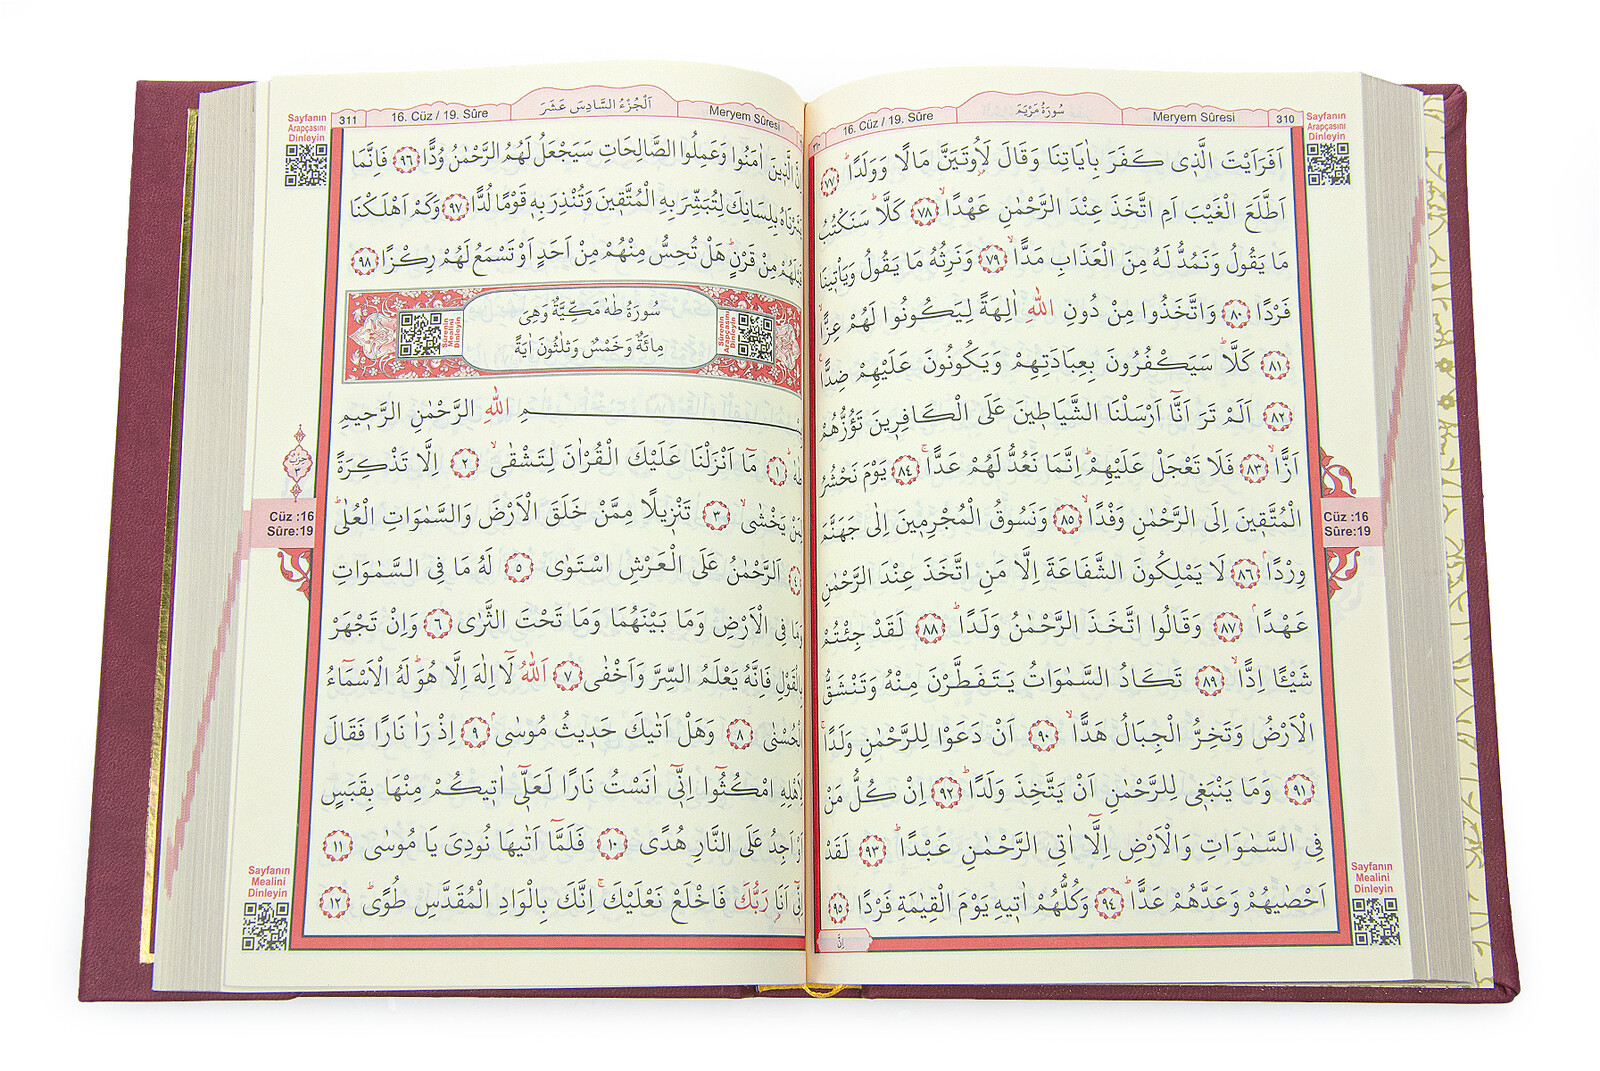 310
Meryem Sûresi
سُورَةُ مَرْيَمَ
16. Cüz / 19. Sûre
Sayfanın
Arapçasını
Dinleyin
اَفَرَاَيْتَ الَّذ۪ي كَفَرَ بِاٰيَاتِنَا وَقَالَ لَاُو۫تَيَنَّ مَالًا وَوَلَدًاۜ ﴿٧٧﴾
اَطَّلَعَ الْغَيْبَ اَمِ اتَّخَذَ عِنْدَ الرَّحْمٰنِ عَهْدًاۙ ﴿٧٨﴾ كَلَّاۜ سَنَكْتُبُ
مَا يَقُولُ وَنَمُدُّ لَهُ مِنَ الْعَذَابِ مَدًّاۙ ﴿٧٩﴾ وَنَرِثُهُ مَا يَقُولُ وَيَأْت۪ينَا
فَرْدًا ﴿٨٠﴾ وَاتَّخَذُوا مِنْ دُونِ اللّٰهِ اٰلِهَةً لِيَكُونُوا لَهُمْ عِزًّاۙ
﴿٨١﴾ كَلَّاۜ سَيَكْفُرُونَ بِعِبَادَتِهِمْ وَيَكُونُونَ عَلَيْهِمْ ضِدًّا۟
﴿٨٢﴾ اَلَمْ تَرَ اَنَّٓا اَرْسَلْنَا الشَّيَاط۪ينَ عَلَى الْكَافِر۪ينَ تَؤُزُّهُمْ
اَزًّاۙ ﴿٨٣﴾ فَلَا تَعْجَلْ عَلَيْهِمْۜ اِنَّمَا نَعُدُّ لَهُمْ عَدًّاۚ ﴿٨٤﴾ يَوْمَ نَحْشُرُ
الْمُتَّق۪ينَ اِلَى الرَّحْمٰنِ وَفْدًاۙ ﴿٨٥﴾ وَنَسُوقُ الْمُجْرِم۪ينَ اِلٰى جَهَنَّمَ
وِرْدًاۢ ﴿٨٦﴾ لَا يَمْلِكُونَ الشَّفَاعَةَ اِلَّا مَنِ اتَّخَذَ عِنْدَ الرَّحْمٰنِ
عَهْدًاۢ ﴿٨٧﴾ وَقَالُوا اتَّخَذَ الرَّحْمٰنُ وَلَدًاۜ ﴿٨٨﴾ لَقَدْ جِئْتُمْ
شَيْـًٔا اِدًّاۙ ﴿٨٩﴾ تَكَادُ السَّمٰوَاتُ يَتَفَطَّرْنَ مِنْهُ وَتَنْشَقُّ
الْاَرْضُ وَتَخِرُّ الْجِبَالُ هَدًّاۙ ﴿٩٠﴾ اَنْ دَعَوْا لِلرَّحْمٰنِ وَلَدًاۚ
﴿٩١﴾ وَمَا يَنْبَغ۪ي لِلرَّحْمٰنِ اَنْ يَتَّخِذَ وَلَدًاۜ ﴿٩٢﴾ اِنْ كُلُّ مَنْ
فِي السَّمٰوَاتِ وَالْاَرْضِ اِلَّٓا اٰتِي الرَّحْمٰنِ عَبْدًاۜ ﴿٩٣﴾ لَقَدْ
اَحْصٰيهُمْ وَعَدَّهُمْ عَدًّاۜ ﴿٩٤﴾ وَكُلُّهُمْ اٰت۪يهِ يَوْمَ الْقِيٰمَةِ فَرْدًا ﴿٩٥﴾
اِنَّ
Cüz :16
Sûre:19
Sayfanın
Mealini
Dinleyin
Meryem Sûresi
اَلْجُزْءُ السَّادِسَ عَشَرَ
16. Cüz / 19. Sûre
311
Sayfanın
Arapçasını
Dinleyin
الَّذ۪ينَ اٰمَنُوا وَعَمِلُوا الصَّالِحَاتِ سَيَجْعَلُ لَهُمُ الرَّحْمٰنُ وُدًّا ﴿٩٦﴾ فَاِنَّمَا
بِلِسَانِكَ لِتُبَشِّرَ بِهِ الْمُتَّق۪ينَ وَتُنْذِرَ بِه۪ قَوْمًا لُدًّا ﴿٩٧﴾ وَكَمْ اَهْلَكْنَا
مِنْ قَرْنٍۜ هَلْ تُحِسُّ مِنْهُمْ مِنْ اَحَدٍ اَوْ تَسْمَعُ لَهُمْ رِكْزًا ﴿٩٨﴾
Sûrenin
Arapçasını
Dinleyin
سُورَةُ طٰهٰ مَكِّيَّةٌ وَهِيَ
مِائَةٌ وَخَمْسٌ وَثَلٰثُونَ اٰيَةً
Sûrenin
Mealini
Dinleyin
اللّٰهِ الرَّحْمٰنِ الرَّح۪يمِ
﴿١﴾ مَٓا اَنْزَلْنَا عَلَيْكَ الْقُرْاٰنَ لِتَشْقٰىۙ ﴿٢﴾ اِلَّا تَذْكِرَةً
يَخْشٰىۙ ﴿٣﴾ تَنْز۪يلًا مِمَّنْ خَلَقَ الْاَرْضَ وَالسَّمٰوَاتِ الْعُلٰىۜ
﴿٤﴾ اَلرَّحْمٰنُ عَلَى الْعَرْشِ اسْتَوٰى ﴿٥﴾ لَهُ مَا فِي السَّمٰوَاتِ
فِي الْاَرْضِ وَمَا بَيْنَهُمَا وَمَا تَحْتَ الثَّرٰى ﴿٦﴾ وَاِنْ تَجْهَرْ
بِالْقَوْلِ فَاِنَّهُ يَعْلَمُ السِّرَّ وَاَخْفٰى ﴿٧﴾ اَللّٰهُ لَٓا اِلٰهَ اِلَّا هُوَۜ لَهُ الْاَسْمَٓاءُ
الْحُسْنٰى ﴿٨﴾ وَهَلْ اَتٰيكَ حَد۪يثُ مُوسٰىۢ ﴿٩﴾ اِذْ رَاٰ نَارًا فَقَالَ
لِاَهْلِهِ امْكُثُٓوا اِنّ۪ٓي اٰنَسْتُ نَارًا لَعَلّ۪ٓي اٰت۪يكُمْ مِنْهَا بِقَبَسٍ
اَوْ اَجِدُ عَلَى النَّارِ هُدًى ﴿١٠﴾ فَلَمَّٓا اَتٰيهَا نُودِيَ يَا مُوسٰى ﴿١١﴾
اِنّ۪ٓي اَنَا۬ رَبُّكَ فَاخْلَعْ نَعْلَيْكَۚ اِنَّكَ بِالْوَادِ الْمُقَدَّسِ طُوًىۜ ﴿١٢﴾
حِزْبْ
٣
Cüz :16
Sûre:19
Sayfanın
Mealini
Dinleyin